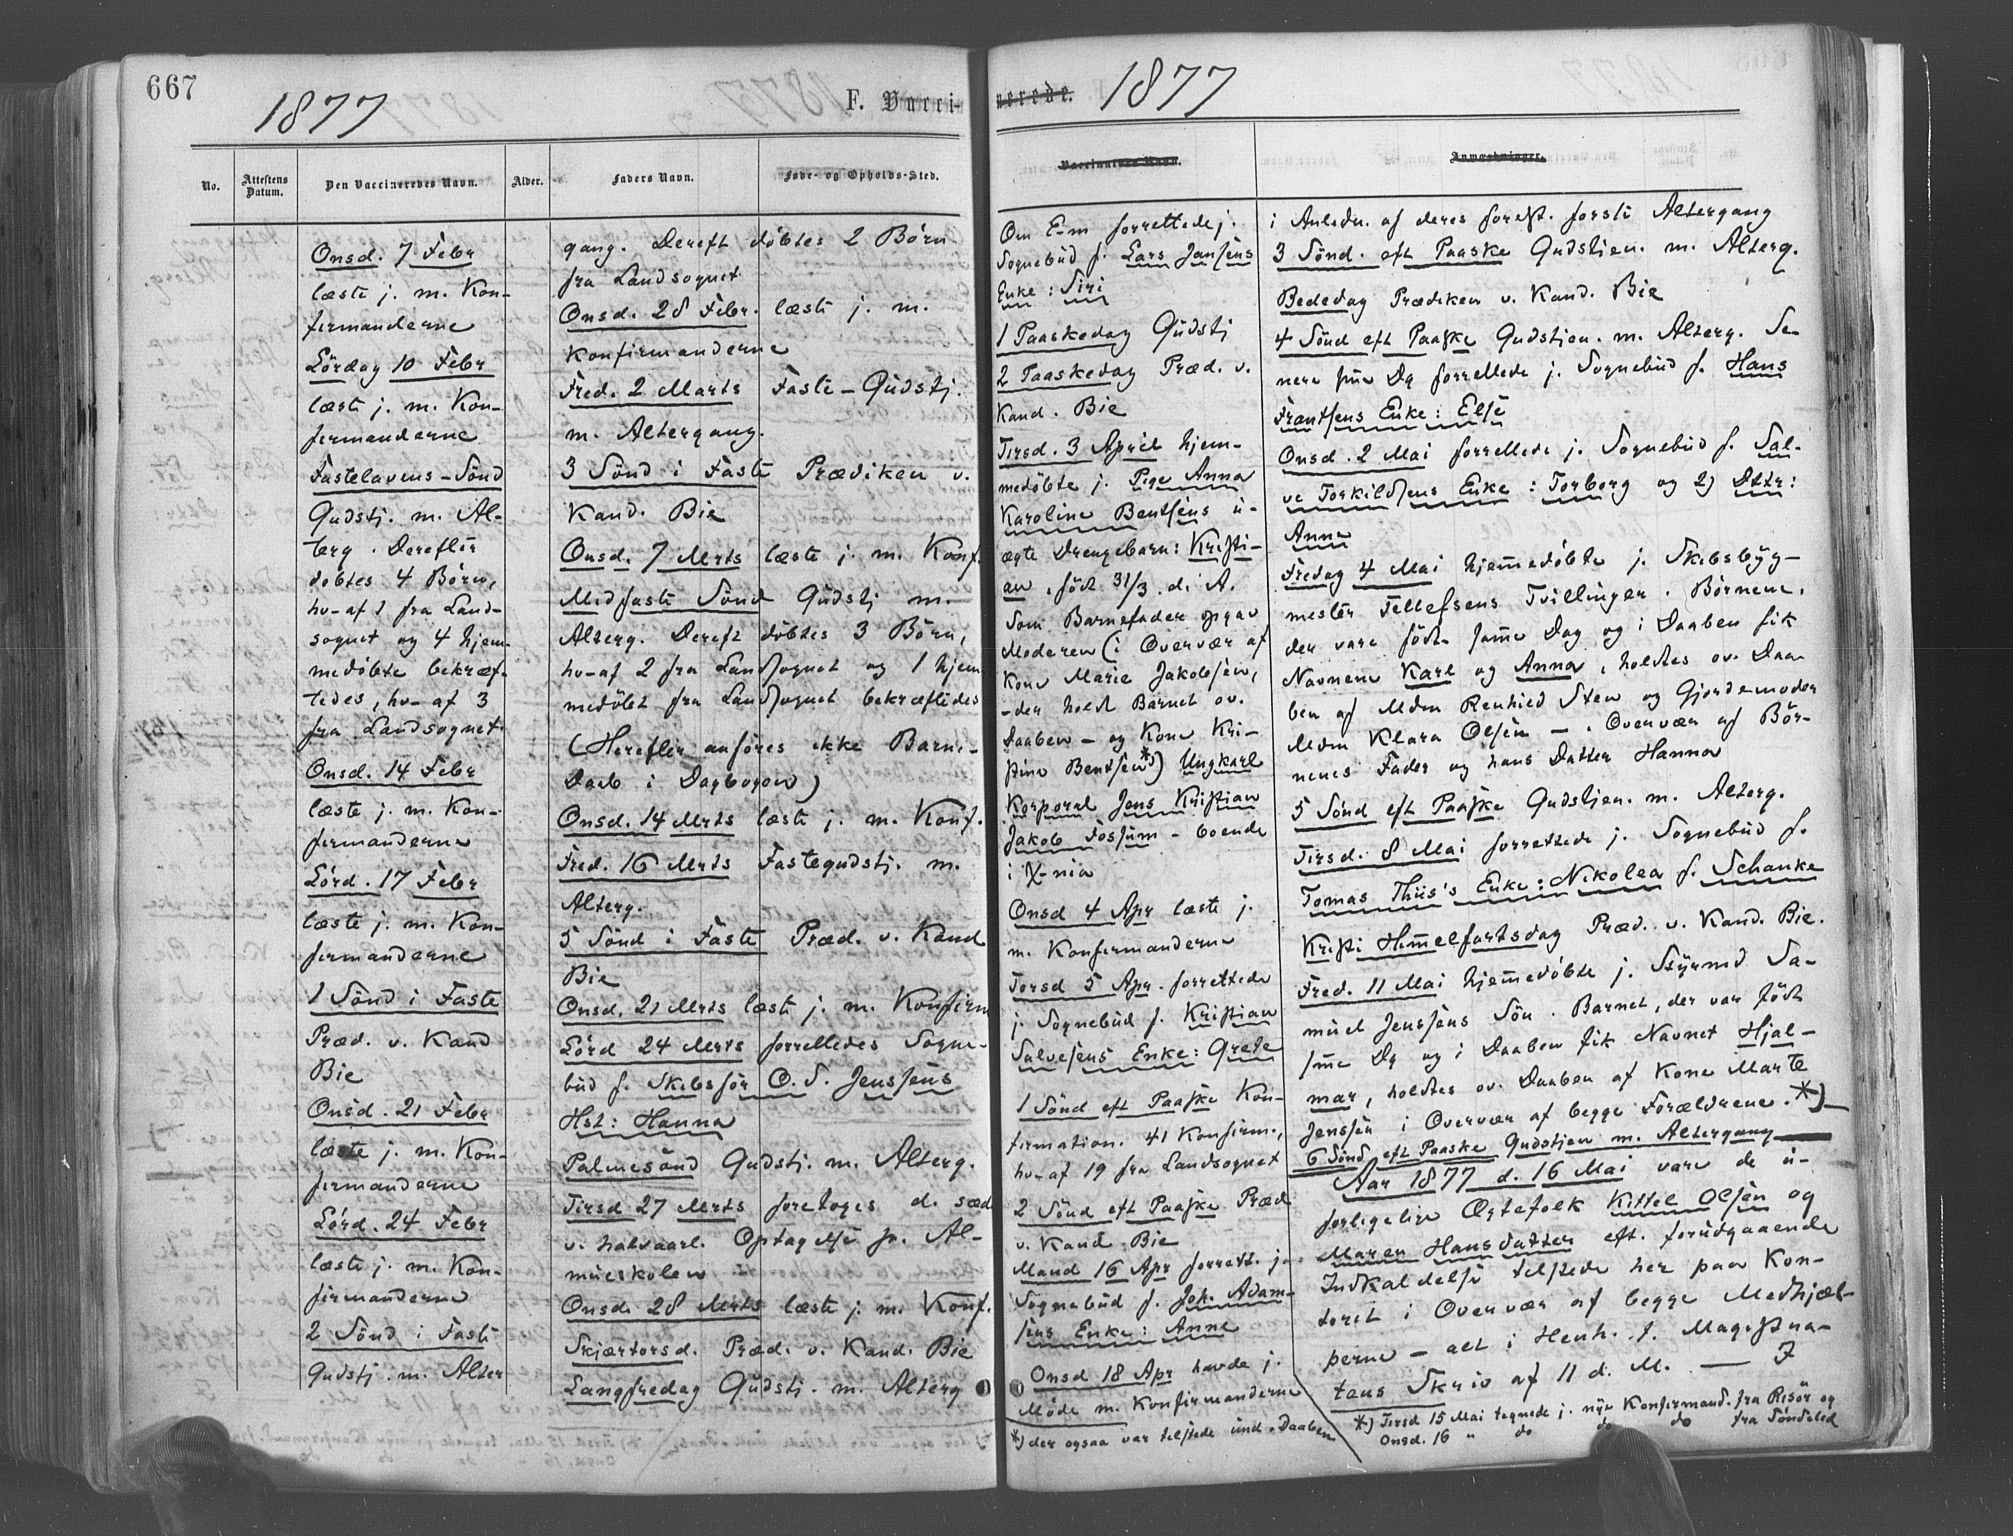 667
1877
F. Vacci-
No.
Attestens Datum.
Den Vaccineredes Navn.
Alder.
Faders Navn.
Føde- og Opholds-Sted.
Onsd. 7 Febr
læste j. m. Kon-
firmanderne
Lördag 10 Febr
læste j. m. Kon-
firmanderne
Fastelavens-Sönd
Gudstj. m. Al-
terg. Derefter
döbtes 4 Börn,
hv-af 1 fra Land-
sognet og 4 hjem-
medöbte bekræf-
tedes, hv-af 3
fra Landsognet.
Onsd. 14 Febr
læste j. m. Kon-
firmanderne
Lörd. 17 Febr
læste j. m. Kon-
firmanderne
1 Sönd i Faste
Præd. v. Kand
Bie
Onsd. 21 Febr
læste j. m. Kon-
firmanderne
Lörd. 24 Febr
læste j. m. Kon-
firmanderne
2 Sönd i Faste
Gudstj. m. Alter
gang. Dereft döbtes 2 Börn
fra Landsognet
Onsd. 28 Febr. læste j. m.
Konfirmanderne
Fred. 2 Marts Faste-Gudstj.
m. Altergang.
3 Sönd i Faste Prædiken v.
Kand. Bie
Onsd. 7 Mrts læste j. m. Konf.
Midfaste Sönd Gudstj m.
Alterg. Dereft döbtes 3 Börn,
hv-af 2 fra Landsognet og 1 hjem
medöbt fra Landsognet bekræftedes
(Herefter anföres ikke Barne-
Daab i Dagbogen)
Onsd. 14 Mrts læste j. m. Konf.
Fred. 16 Mrts Fastegudstj. m.
Alterg.
5 Sönd i Faste Præd. v. Kand
Bie
Onsd. 21 Mrts læst j. m. Konfirm
Lörd 24 Mrts forrettedes Sogne-
bud f. Skibsför O. S. Jenssens
Hst: Hanna
Palmesönd Gudstj. m. Alterg.
Tirsd 27 Mrts foretoges d. sæd
v. halvaarl. Optagelse p. Al-
mueskolen
Onsd. 28 Mrts læste j. m. Konf.
Skjærtorsd. Præd. v. Kand. Bie
Langfredag Gudstj. m. Alterg
nerede.
1877
Vaccinatørs Navn.
Anmærkninger.
Om Em forrettede j.
Sognebud f. Lars Jansens
Enke: Siri
1 Paaskedag Gudstj
2 Paaskedag Præd. v.
Kand. Bie
Tirsd. 3 April hjem-
medöbte j. Pige Anna
Karoline Bentsens u-
ægte Drengebarn: Kristi-
an, födt 31/3 d. A.
Som Barnefader opgav
Moderen (i Overvær af
Kone Marie Jakobsen,
-der holdt Barnet ov.
Daaben - og Kone Kri-
stine Bentsen*) Ungkarl
Korporal Jens Kristian
Jakob Fossum - boende
i X-nia
Onsd 4 Apr læste j.
m. Konfirmanderne
Torsd 5 Apr. forrettede
j. Sognebud f. Kristian
Salvesens Enke: Grete
1 Sönd eft Paaske Kon-
firmation. 41 Konfirm.,
hv-af 19 fra Landsognet
2 Sönd eft Paaske Præd
v. Kand. Bie
Mand 16 Apr forrett. j.
Sognebud f. Joh. Adam-
sens Enke: Anne
Onsd 18 Apr havde j.
Möde m. Konfirmanderne
*) der ogsaa var tilstede und. Daaben
i Anledn. af deres forest. forste Altergang
3 Sönd. eft Paaske Gudstjen. m. Alterg.
Bededag Prædiken v. Kand. Bie
4 Sönd eft Paaske Gudstjen. m. Alterg. Se-
nere sme Dg forrettede j. Sognebud f. Hans
Frantsens Enke: Else
Onsd. 2 Mai forrettede j. Sognebud f. Sal-
ve Torkildsens Enke: Torborg og 2) Dttr:
Anne
Fredag 4 Mai hjemmedöbte j. Skibsbyg-
mester Tellefsens Tvillinger. Börnene,
der vare födt samme Dag og i Daaben fik
Navnene Karl og Anna, holdtes ov. Daa-
ben af Mdm Renhied Sten og Gjordemoder
Mdm Klara Olsen - i Overvær af Bör-
nenes Fader og hans Datter Hanna
5 Sönd eft Paaske Gudstjen. m. Alterg.
Tirsd. 8 Mai forrettede j. Sognebud f.
Tomas Thiis's Enke: Nikolea f. Schanke
Kristi Himmelfartsdag Præd. v. Kand. Bie.
Fred. 11 Mai hjemmedöbte j. Styrmd Sa-
muel Jenssens Sön. Barnet, der var födt
sme Dg og i Daaben fik Navnet Hjal-
mar, holdtes ov. Daaben af Kone Marte
Jenssen i Overvær af begge Forældrene. *)
6 Sönd eft Paaske Gudstjen m. Altergang
Aar 1877 d. 16 Mai vare de u-
forligelige Ægtefolk Kittel Olsen og
Maren Hansdatter eft. forudgaaende
Indkaldelse tilstede her paa Kon-
toret i Overvær af begge Medhjæl-
perne - alt i Henh. t. Magistra-
tens Skriv af 11 d. M.
*) Tirsd 15 Mai tegnede j. nye Konfirmand. fra Risör og
Onsd. 16 " do do do fra Söndeled